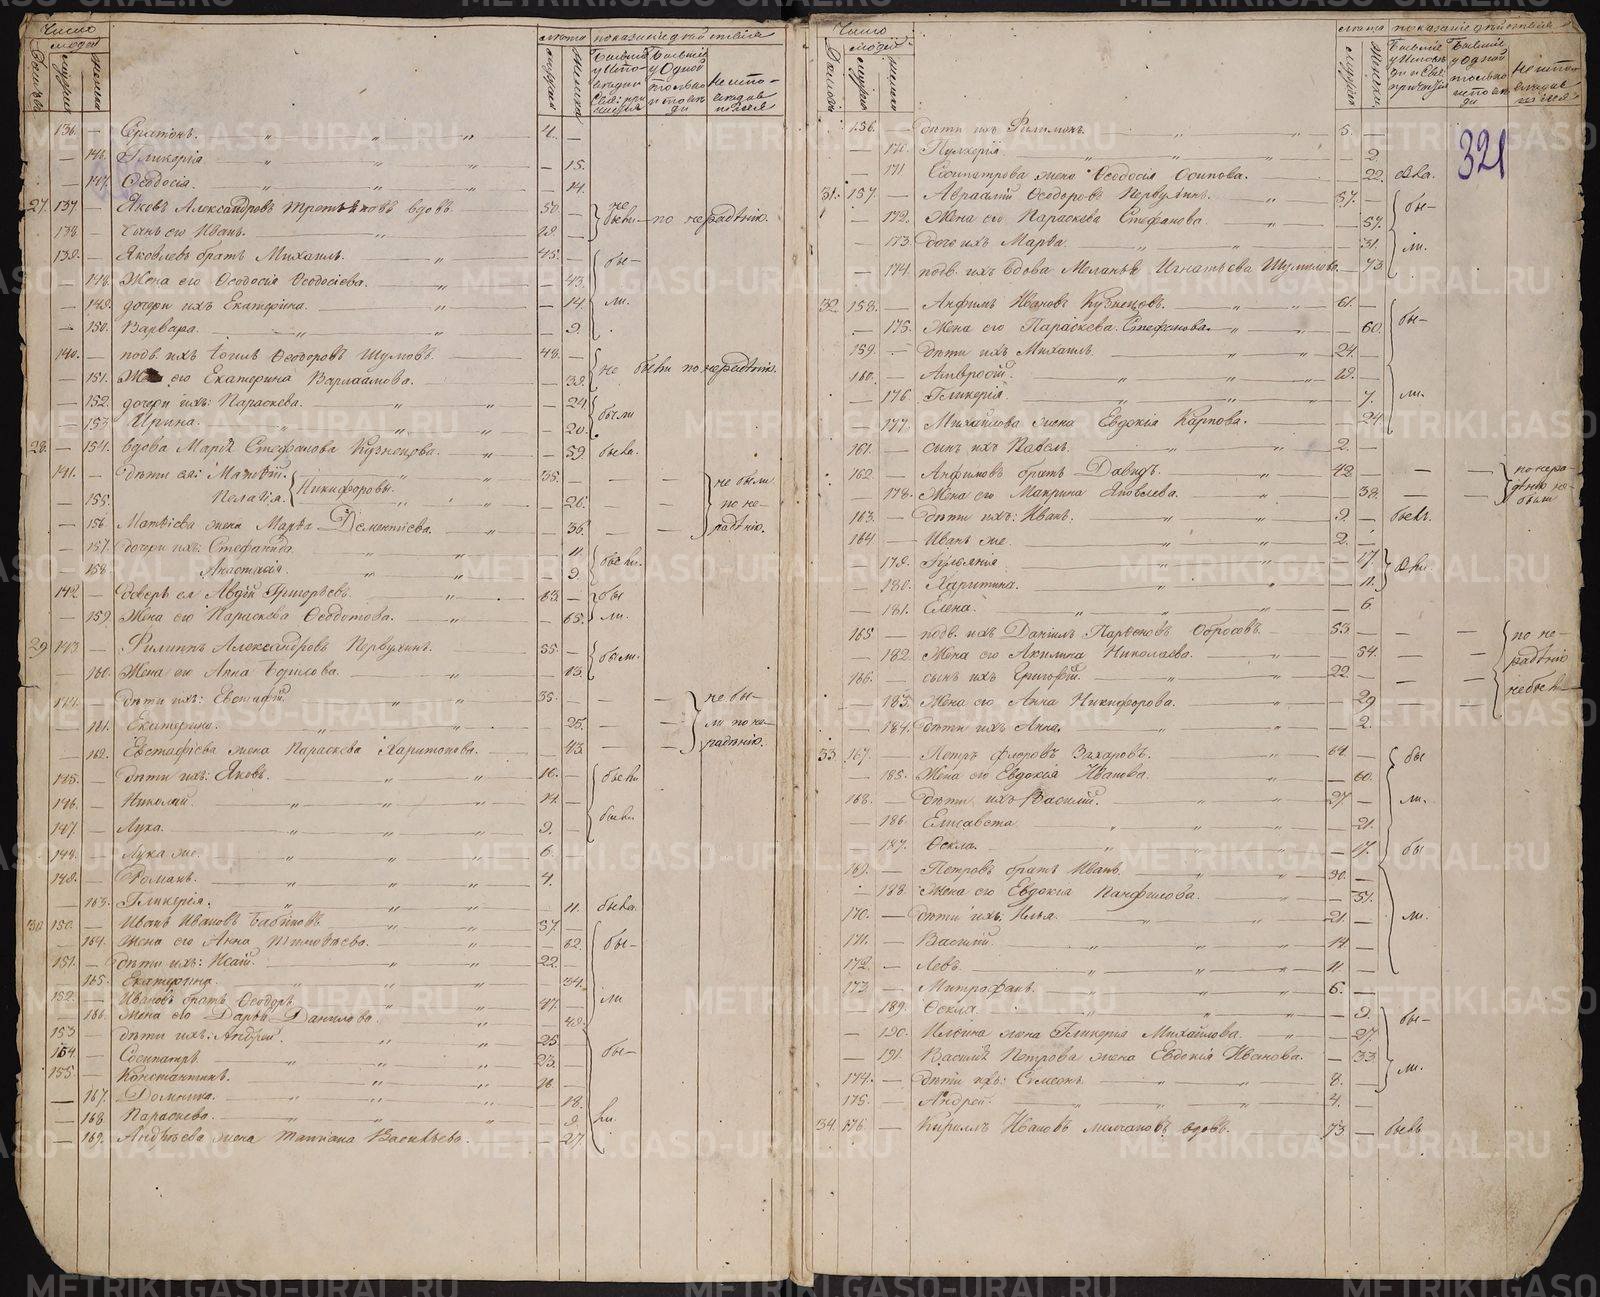 Число
людей
лета
показаніе дѣйствія
136. — Ератонъ. 4. —
— 146. Гликерія — 15.
— 147. Ѳеодосія. — 14.
27. 137. — Яковъ Александровъ Третьяковъ вдовъ. 50. — не были — по нерадѣнію.
138. — Сынъ его Иванъ. 19. —
139. — Яковлевъ братъ Михаилъ. 45. — бы-
— 148. Жена его Ѳеодосія Ѳеодосіева. — 43.
— 149. дочери ихъ Екатерина. — 14. ли.
— 150. Варвара. — 9.
140. — подв. ихъ Ѳеодоровъ Шумовъ. 48. —
— 151. его Екатерина Варлаамова. — 39. не были по нерадѣнію.
— 152. дочери ихъ: Параскева. — 24.
— 153. Ирина. — 20. были
28. — 154. вдова Марія Стефанова Кузнецова. — 59 была.
141. — дѣти ея: Матвѣй. 35. — не были
— 155. Пелагія. Никифоровы. — 26. по не-
— 156 Матвѣева жена Марѳа Дементіева. — 36. радѣнію.
— 157. дочери ихъ: Стефанида. — 11.
— 158. Анастасія. — 9. были.
142 — ея Авдій Григорьевъ. 63. — бы
— 159. Жена его Параскева Ѳеодотова. — 65. ли.
29 143 — Филиппъ Александровъ Первухинъ. 55. —
— 160. Жена его Анна Борисова. — 43. были.
144. — дѣти ихъ: Евстафій. 35. — не бы-
— 161. Екатерина. — 25. ли по не-
— 162. Евстафіева жена Параскева Харитонова. — 43. радѣнію.
145. — дѣти ихъ: Яковъ. 16. — были
146. — Николай. 14. —
147. — Лука. 9. — были
148. — Лука же. 6. —
149. — Романъ. 4. —
— 163. Гликерія. — 11. была.
30 150. — Иванъ Ивановъ Бабиновъ 57. —
— 164. жена его Анна — 62. бы-
151. — дѣти ихъ: Исай. 22. —
— 165. Екатерина. — 34.
152. — Ивановъ братъ Ѳеодоръ 47. — ли
— 166. жена его Дарья Данилова. — 49.
153 — дѣти ихъ: Андрей. 25 —
154. — Сосипатръ 23. — бы-
155. — Константинъ.
— 167. Домника. — 18.
— 168 Параскева. — 9. ли.
— 169. Андреева жена Татіана Васильева. — 27
Число
людей
лета
показаніе дѣйствія
321
156. — дѣти ихъ Филимонъ. 5. —
— 170. Пулхерія — 2.
— 171 Сосипатрова жена Ѳеодосія Осипова. — 22. была.
31. 157. — Авраамій Ѳеодоровъ Первухинъ. 57. — бы-
— 172. Жена его Параскева Стефанова. — 57.
— 173. дочь ихъ Марѳа. — 31. ли.
— 174. подв. ихъ вдова Меланья Игнатьева Шумилова. — 73
32. 158. — Анфимъ Ивановъ Кузнецовъ. 61. —
— 175. Жена его Параскева Стефанова. — 60. бы-
159. — дѣти ихъ Михаилъ. 24. —
160. — Амвросій. 19. —
— 176 Гликерія. — 7. ли.
— 177. Михайлова жена Евдокія Карпова. — 24
161. — сынъ ихъ Павелъ. 2. —
162. — Анфимовъ братъ Давидъ. 42 — по нера-
— 178. Жена его Макрина Яковлева. — 38. дѣнію не были
163. — дѣти ихъ: Иванъ. 9. — былъ.
164. — Иванъ же. 2. —
— 179. — 17.
— 180. Харитина. — 11. были.
— 181. Елена. — 6.
165 — подв. ихъ Даніилъ Парѳеновъ Обросовъ. 53. — по не-
— 182. Жена его Акилина Николаева. — 54. радѣнію
166. — сынъ ихъ Григорій. 22. —
— 183. Жена его Анна Никифорова. — 29 не были
— 184. дѣти ихъ Анна. — 2.
33 167. — Петръ Флоровъ Захаровъ. 64. — бы
— 185. Жена его Евдокія Иванова. — 60.
168. — дѣти ихъ Василій. 27 — ли.
— 186. Елисавета. — 21.
— 187. Ѳекла. — 17. бы
169. — Петровъ братъ Иванъ. 50. —
— 188. жена его Евдокія Панфилова. — 51.
170. — дѣти ихъ: Илья. 21. — ли.
171. — Василій. 14 —
172. — Левъ. 11. —
173 — Митрофанъ. 6. —
— 189. Ѳекла. — 9. бы-
— 190. Ильина жена Гликерія Михайлова. — 27.
— 191. Василія Петрова жена Евдокія Иванова. — 33. ли.
174. — дѣти ихъ: Симеонъ. 8. —
175. — Андрей. 4. —
34 176. — Кирилъ Ивановъ вдовъ. 73 — былъ